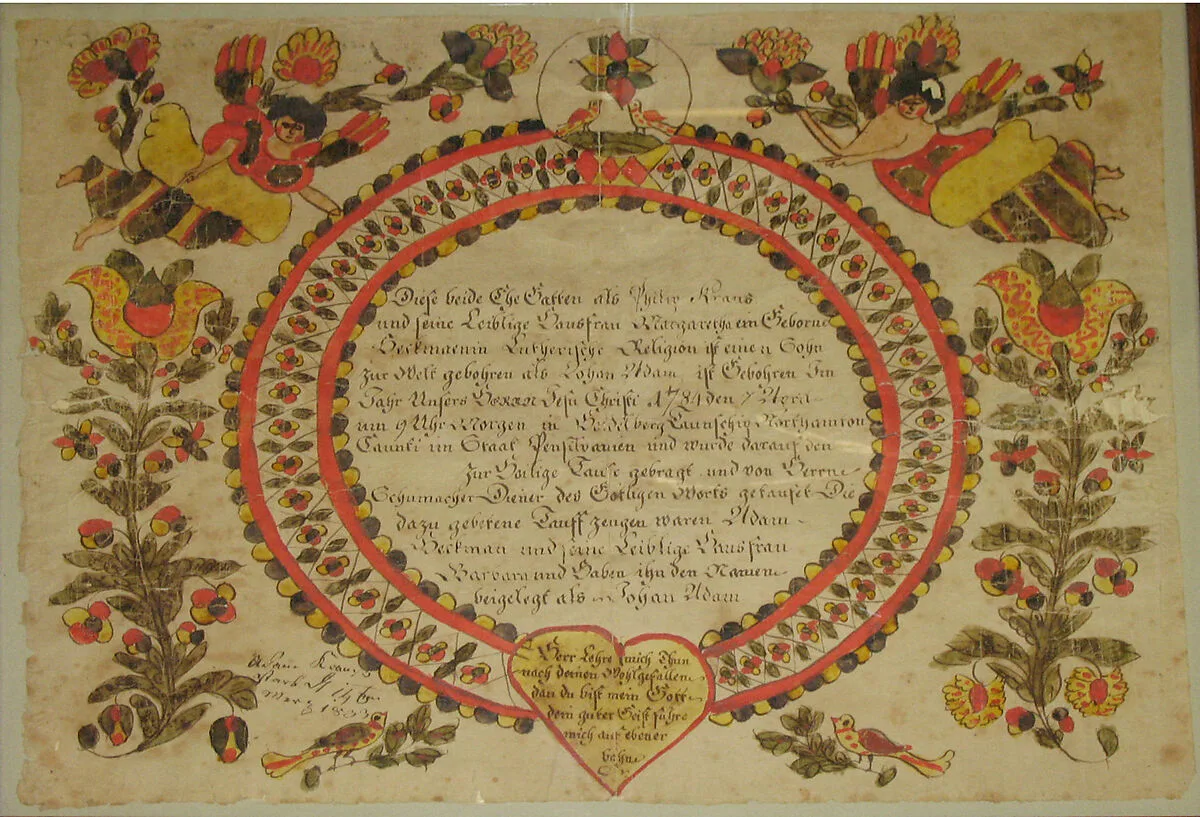 Diese beide Ehe Gatten als Philip Kraus
und seine Leiblige Hausfrau Margaretha ein Geborne
Beckmaenin Lutherische Religion ist einen Sohn
zur Welt gebohren als Johan Adam ist Gebohren Im
Jahr Unsers Herren Jesu Christi 1784 den 7
um 9 Uhr Morgen in Heidelberg Taunschip Northamton
Caunti im Staat Pensilvanien und wurde darauf den
zur Heilige Taufe gebragt und von Herrn
Schumacher Diener des Götligen Worts getaufet Die
dazu gebetene Tauff zeugen waren Adam
Beckman und seine Leiblige Hausfrau
Barbara und Haben ihn den Namen
beigelegt als Johan Adam
Herr Lehre mich Thun
nach deinen Wohlgefallen
dan du bist mein Gott
dein guter Geist führe
mich auf ebener
bahn
Adam Kraus
starb 14